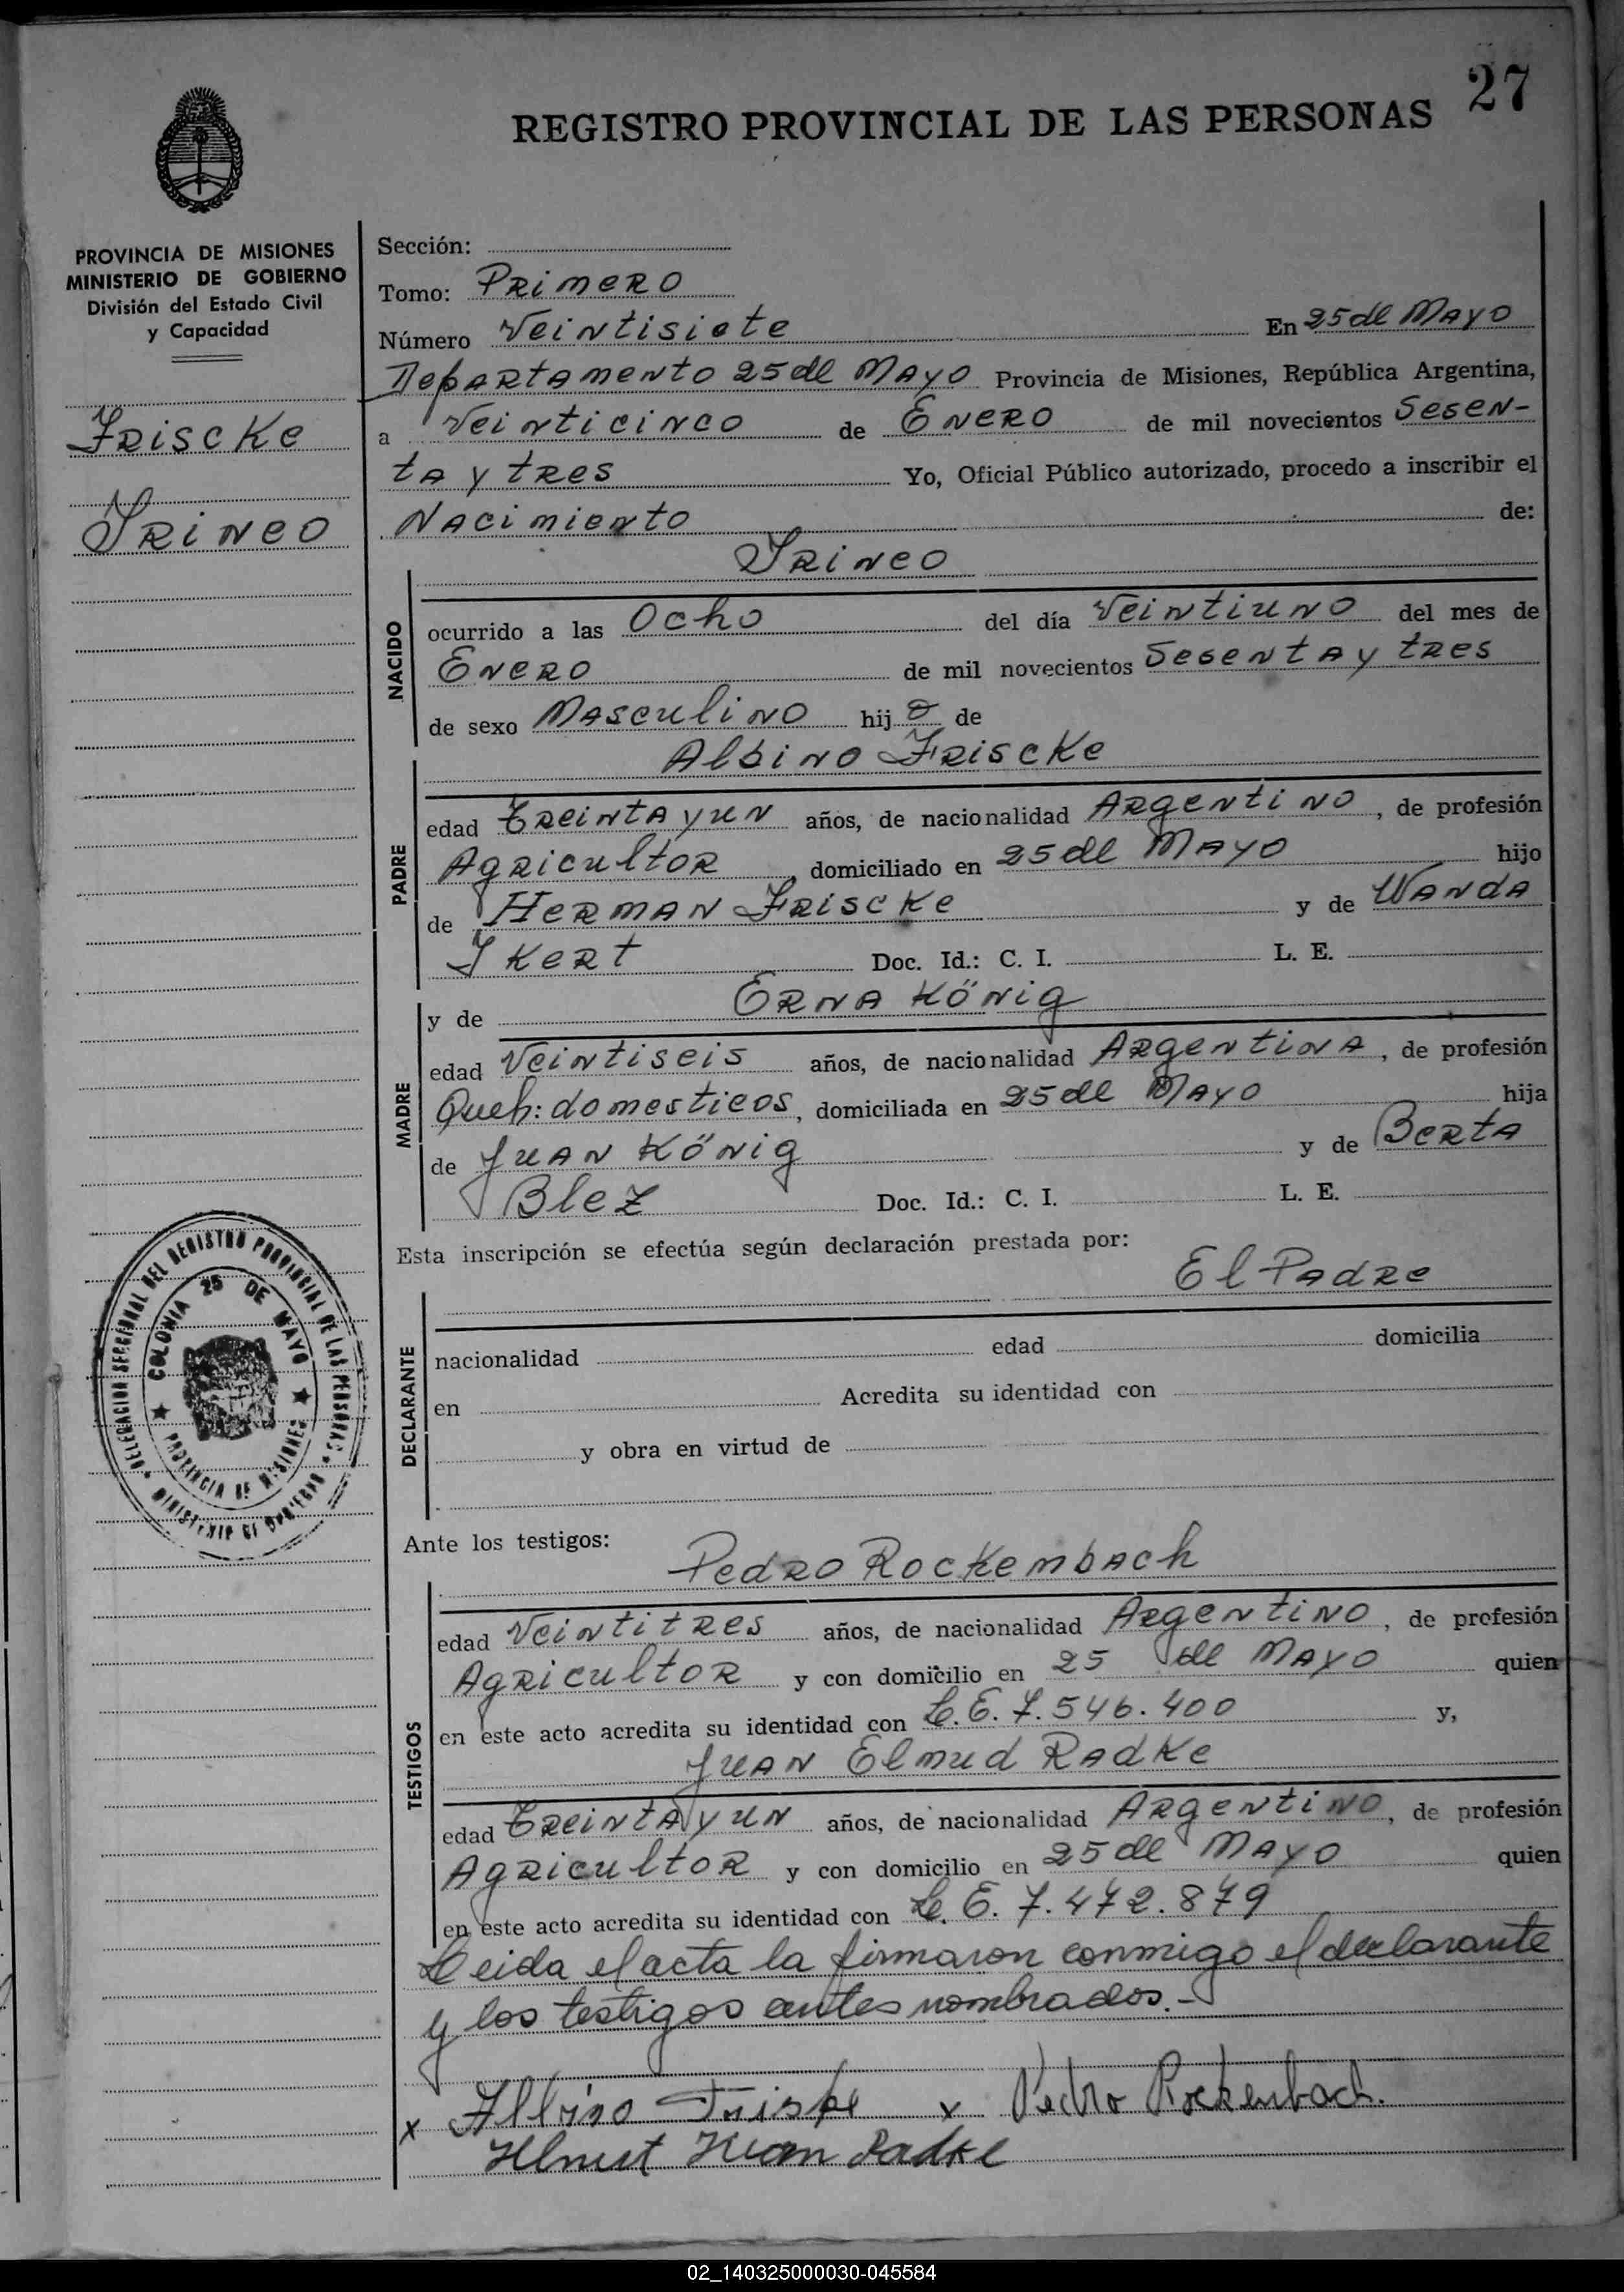 27
REGISTRO PROVINCIAL DE LAS PERSONAS
PROVINCIA DE MISIONES
MINISTERIO DE GOBIERNO
División del Estado Civil
y Capacidad
Friscke
Irineo
Sección:
Tomo: Primero
Número Veintisiete En 25 de Mayo
Departamento 25 de Mayo Provincia de Misiones, República Argentina,
a Veinticinco de Enero de mil novecientos Sesen-
ta y tres Yo, Oficial Público autorizado, procedo a inscribir el
Nacimiento de:
Irineo
NACIDO
ocurrido a las Ocho del día Veintiuno del mes de
Enero de mil novecientos Sesenta y tres
de sexo Masculino hijo de
Albino Friscke
PADRE
edad Treinta y un años, de nacionalidad Argentino, de profesión
Agricultor, domiciliado en 25 de Mayo hijo
de Herman Friscke y de Wanda
Ikert Doc. Id.: C. I. L. E.
y de Erna König
MADRE
edad Veintiseis años, de nacionalidad Argentina, de profesión
Queh: domesticos, domiciliada en 25 de Mayo hija
de Juan König y de Berta
Blez Doc. Id.: C. I. L. E.
Esta inscripción se efectúa según declaración prestada por:
El Padre
DECLARANTE
nacionalidad edad domicilia
en Acredita su identidad con
y obra en virtud de
DELEGACION SECCIONAL DEL REGISTRO PROVINCIAL DE LAS PERSONAS
COLONIA 25 DE MAYO
PROVINCIA DE MISIONES
MINISTERIO DE GOBIERNO
Ante los testigos:
Pedro Rockembach
TESTIGOS
edad Veintitres años, de nacionalidad Argentino, de profesión
Agricultor y con domicilio en 25 de Mayo quien
en este acto acredita su identidad con L.E. 7.546.400 y,
Juan Elmud Radke
edad Treinta y un años, de nacionalidad Argentino, de profesión
Agricultor y con domicilio en 25 de Mayo quien
en este acto acredita su identidad con L.E. 7.472.879
Leida el acta la firmaron conmigo el declarante
y los testigos antes nombrados.-
x Albino Friske x Pedro Rockenbach.
Helmut Juan Radke
02_140325000030-045584